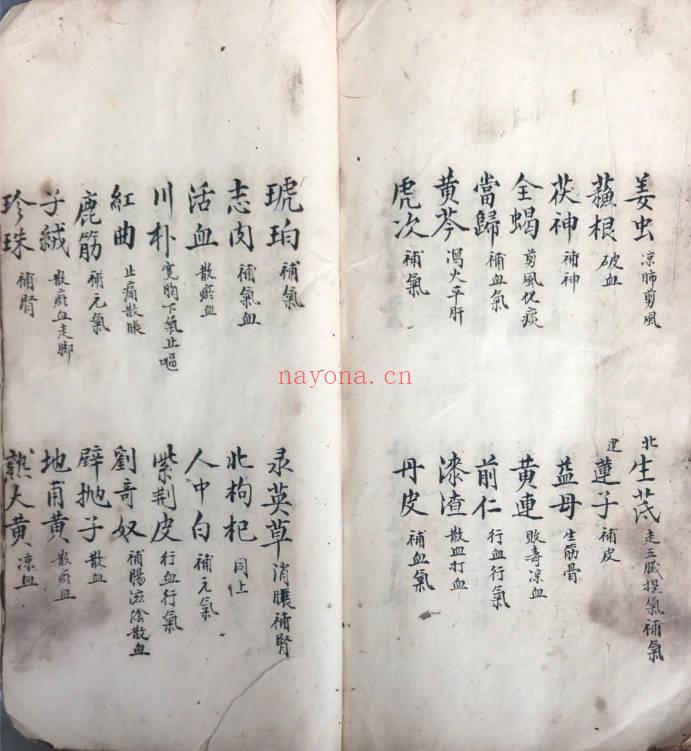 姜虫 凉肺剪風
蘓根 破血
茯神 補神
全蝎 剪風化痰
當歸 補血氣
黄芩 瀉火平肝
虎次 補氣
北生芪 走五臓提氣補氣
建蓮子 補皮
益母 生筋骨
黄連 敗毒凉血
前仁 行血行氣
漆渣 散血打血
丹皮 補血氣
琥珀 補氣
志肉 補氣血
活血 散瘀血
川朴 寬胸下氣止嘔
紅曲 止痛散脹
鹿筋 補元氣
子绒 散瘀血走脚
珍珠 補腎
英草 消脹補腎
北枸杞 同仩
人中白 補元氣
紫荆皮 行血行氣
劉哥奴 補腸滋陰散血
辟抛子 散血
地甫黄 散瘀血
熟大黄 凉血
nayona.cn